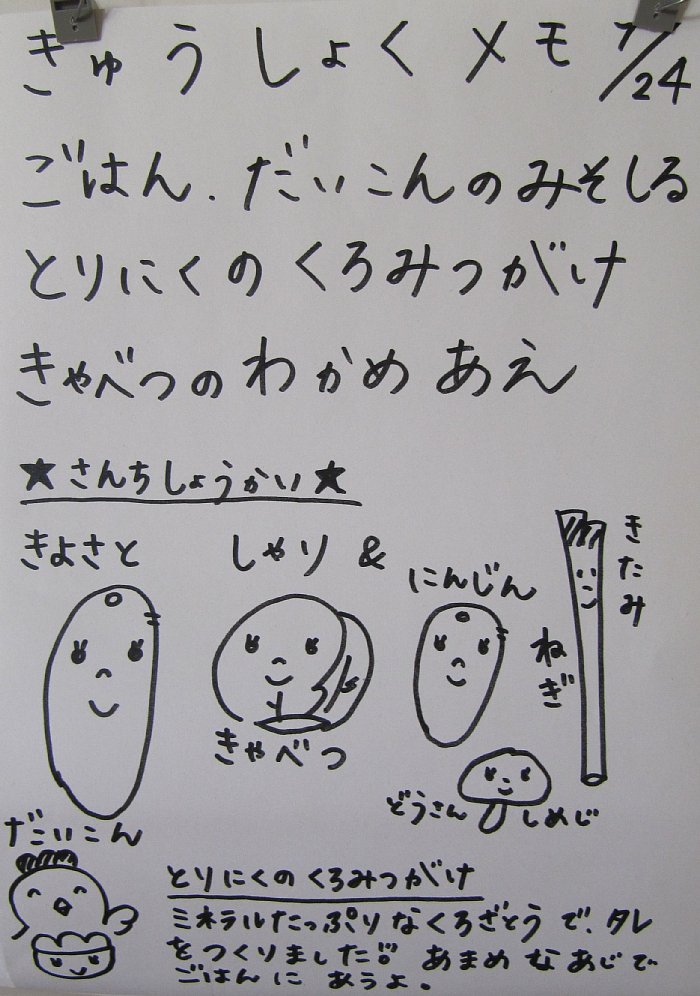 きゅうしょくメモ 7/24
ごはん．だいこんのみそしる
とりにくのくろみつがけ
きゃべつのわかめあえ
★さんちしょうかい★
きよさと
しゃり &
にんじん
きたみ
ねぎ
きゃべつ
どうさん しめじ
だいこん
とりにくのくろみつがけ
ミネラルたっぷりなくろざとうで、タレ
をつくりました!! あまめなあじで
ごはんにあうよ。